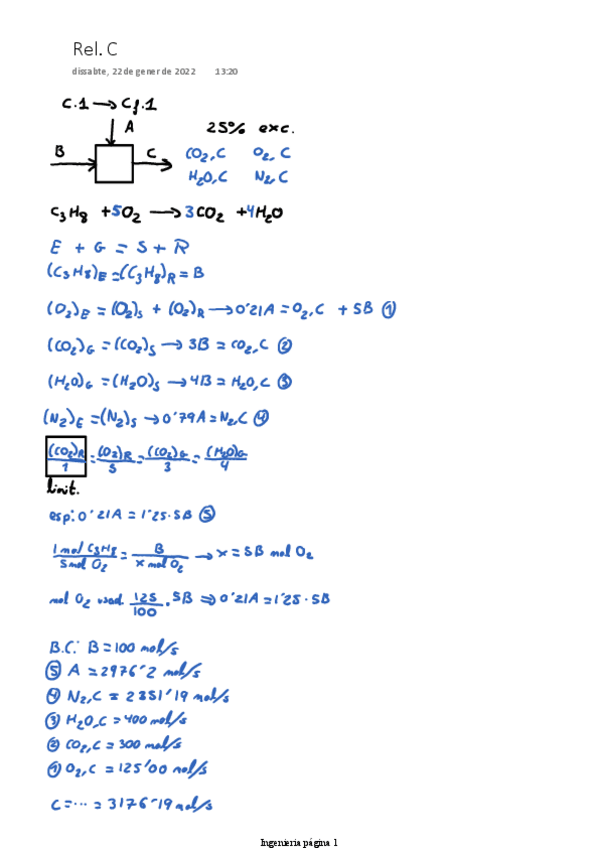 Rel. C
dissabte, 22 de gener de 2022 13:20
C.1 → Cf.1
A
25% exc.
B C CO2,C O2,C
H2O,C N2,C
C3H8 + 5O2 → 3CO2 + 4H2O
E + G = S + R
(C3H8)E = (C3H8)R = B
(O2)E = (O2)S + (O2)R → 0'21A = O2,C + 5B ①
(CO2)G = (CO2)S → 3B = CO2,C ②
(H2O)G = (H2O)S → 4B = H2O,C ③
(N2)E = (N2)S → 0'79A = N2,C ④
(CO2)R/1 = (O2)R/5 = (CO2)G/3 = (H2O)G/4
limit.
esp: 0'21A = 1'25·5B ⑤
1 mol C3H8/5 mol O2 = B/x mol O2 → x = 5B mol O2
mol O2 usad. 125/100 · 5B ⇒ 0'21A = 1'25·5B
B.C: B = 100 mol/s
⑤ A = 2976'2 mol/s
④ N2,C = 2351'19 mol/s
③ H2O,C = 400 mol/s
② CO2,C = 300 mol/s
① O2,C = 125'00 mol/s
C = ··· = 3176'19 mol/s
Ingenieria página 1